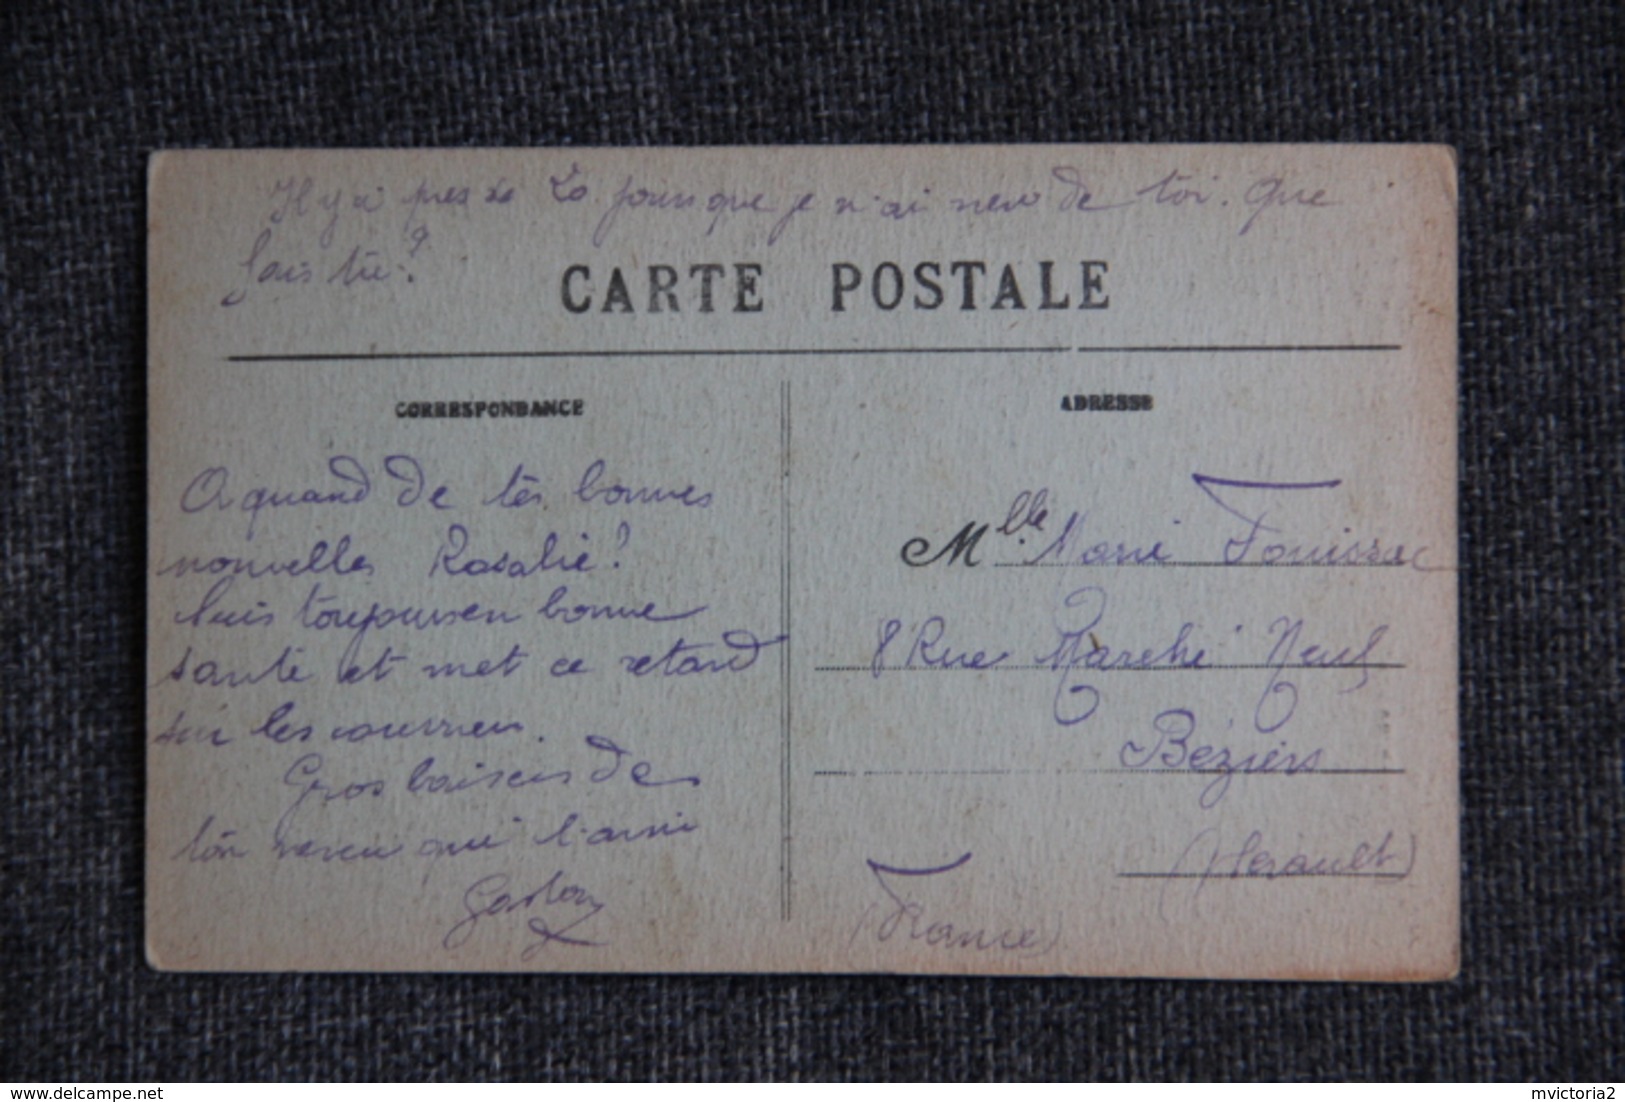 Il y a pres de 20 jours que je n'ai rien de toi. Que
fais tu?
CARTE POSTALE
CORRESPONDANCE
ADRESSE
A quand de tes bonnes
nouvelles Rosalie?
Suis toujours en bonne
santé et met ce retard
sur les courriers.
Gros baisers de
ton neveu qui t'aime
Gaston
Mlle Marie Fouissac
8 Rue Marché Neuf
Béziers
(Hérault)
(France)
mvictoria2